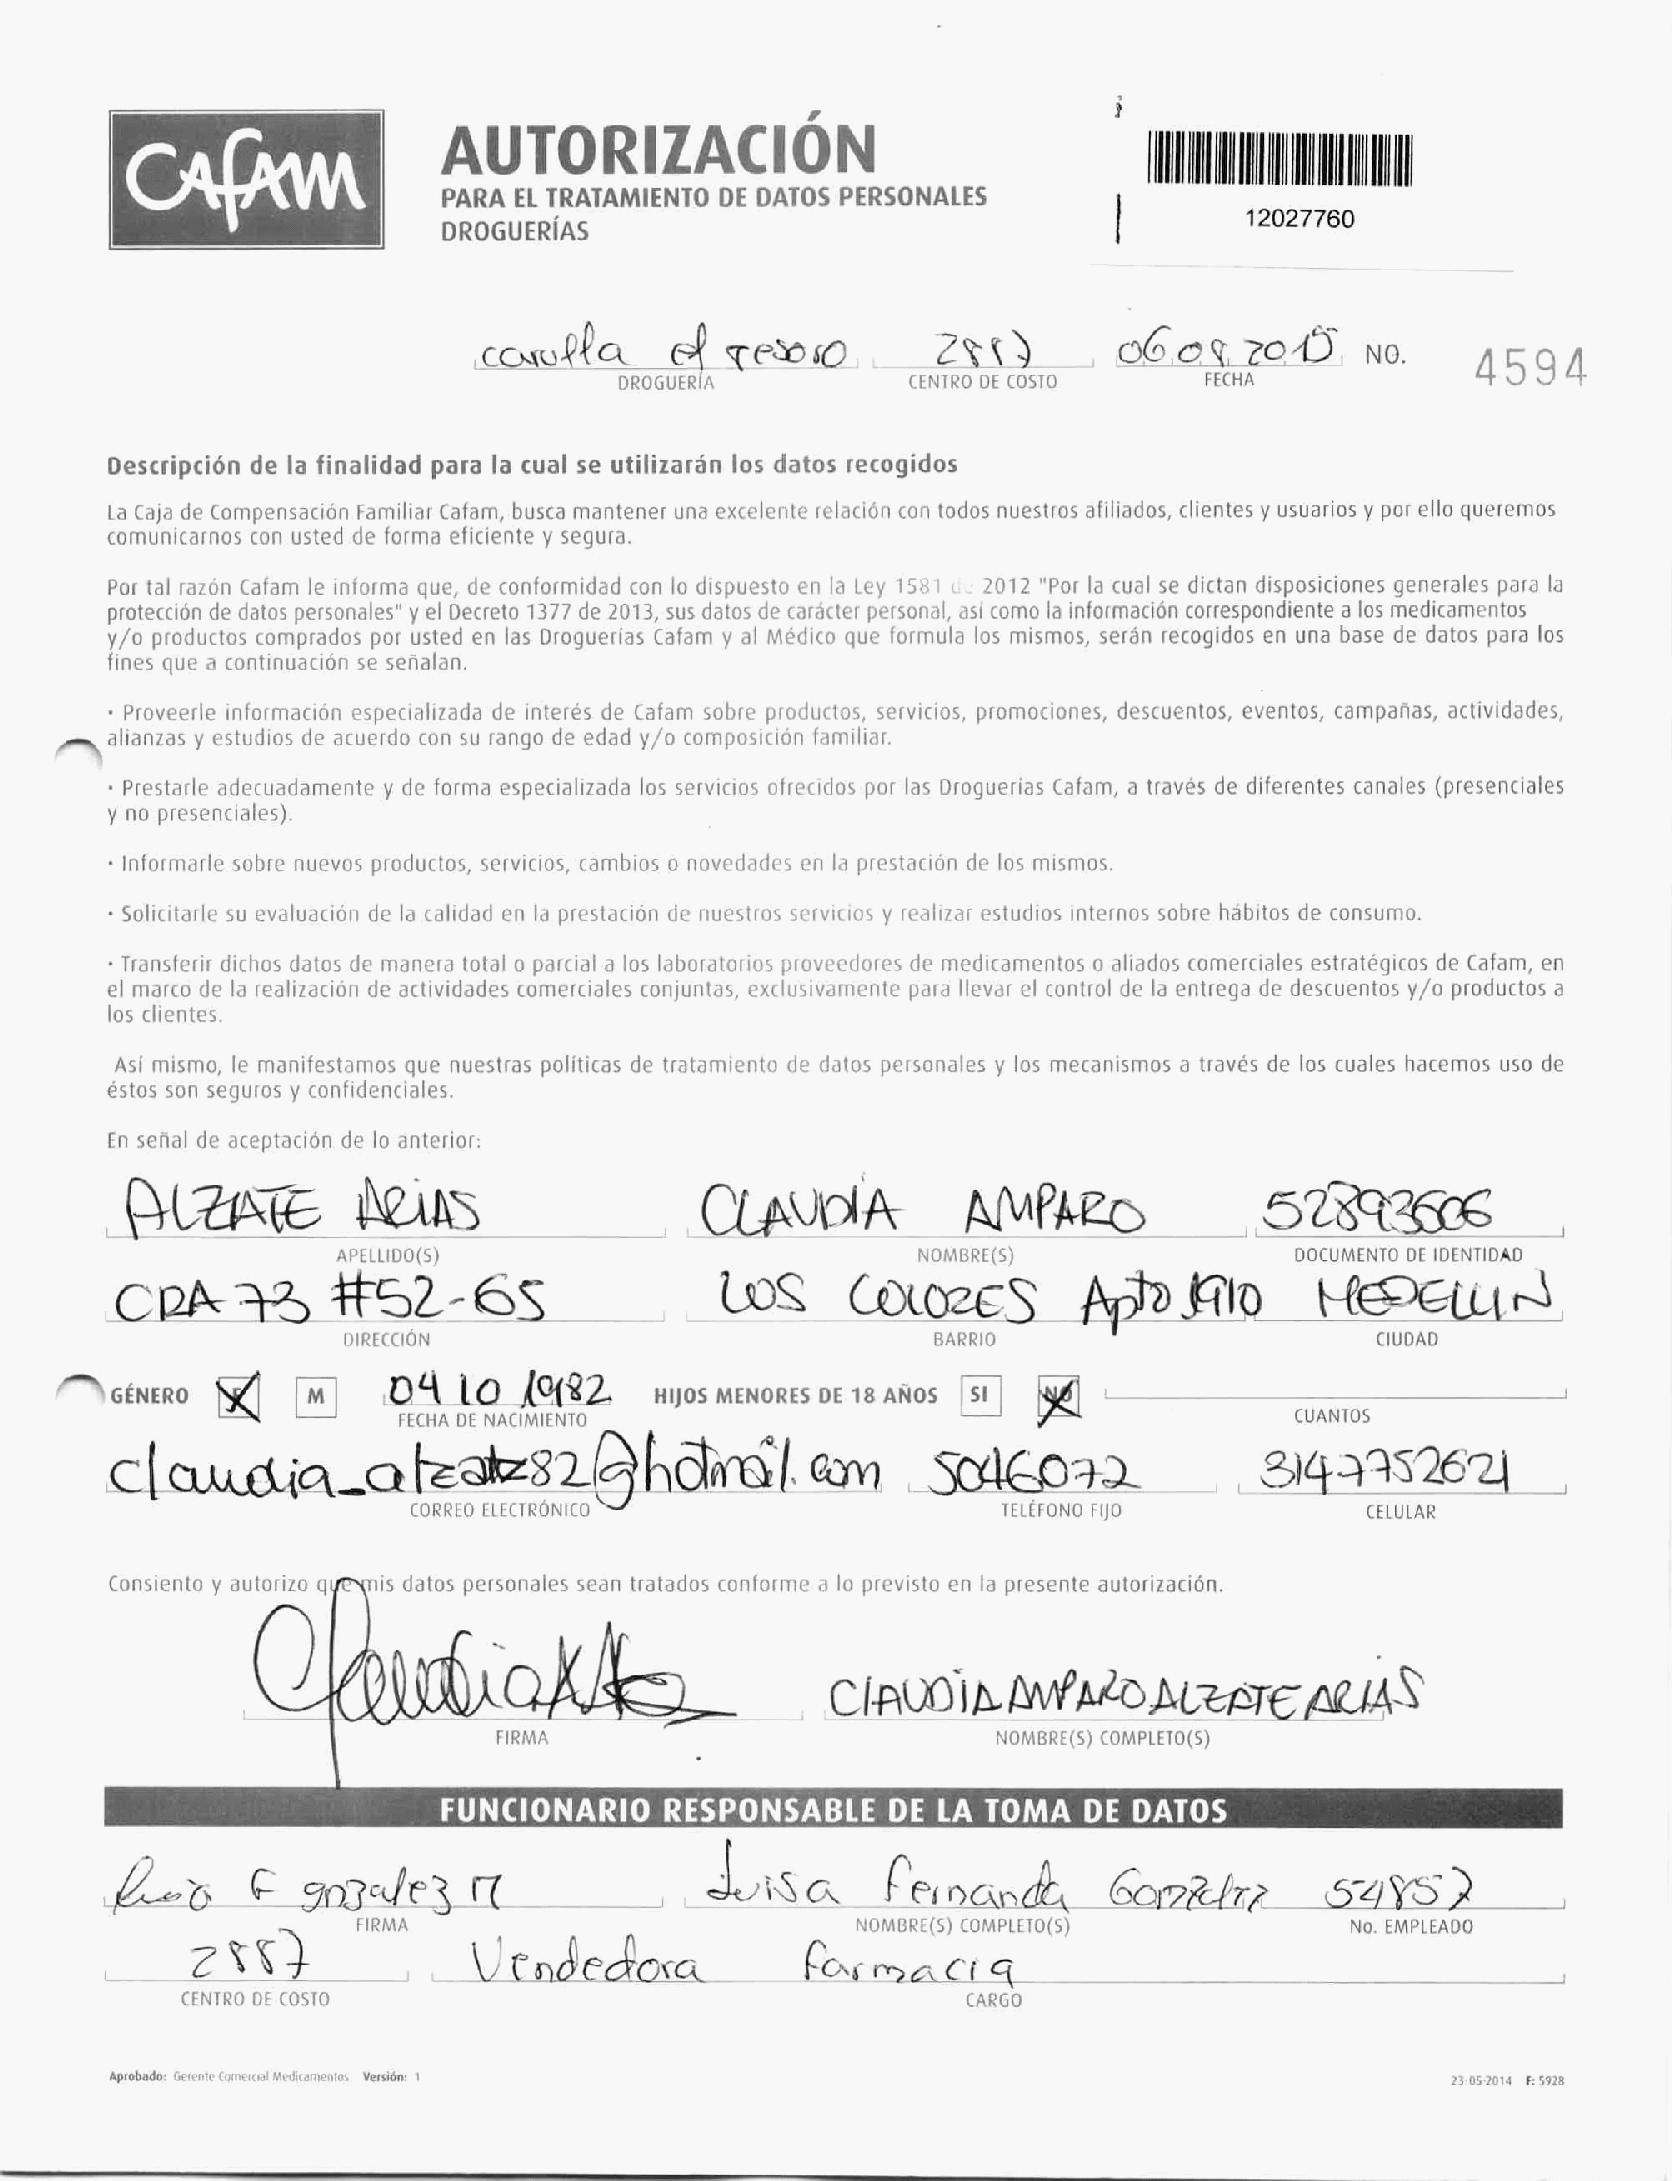 Cafam
AUTORIZACIÓN
PARA EL TRATAMIENTO DE DATOS PERSONALES
DROGUERÍAS
12027760
carulla el tesoro 2887 06 08 2015 NO. 4594
DROGUERÍA CENTRO DE COSTO FECHA
Descripción de la finalidad para la cual se utilizarán los datos recogidos
La Caja de Compensación Familiar Cafam, busca mantener una excelente relación con todos nuestros afiliados, clientes y usuarios y por ello queremos
comunicarnos con usted de forma eficiente y segura.
Por tal razón Cafam le informa que, de conformidad con lo dispuesto en la Ley 1581 de 2012 "Por la cual se dictan disposiciones generales para la
protección de datos personales" y el Decreto 1377 de 2013, sus datos de carácter personal, así como la información correspondiente a los medicamentos
y/o productos comprados por usted en las Droguerías Cafam y al Médico que formula los mismos, serán recogidos en una base de datos para los
fines que a continuación se señalan.
· Proveerle información especializada de interés de Cafam sobre productos, servicios, promociones, descuentos, eventos, campañas, actividades,
alianzas y estudios de acuerdo con su rango de edad y/o composición familiar.
· Prestarle adecuadamente y de forma especializada los servicios ofrecidos por las Droguerías Cafam, a través de diferentes canales (presenciales
y no presenciales).
· Informarle sobre nuevos productos, servicios, cambios o novedades en la prestación de los mismos.
· Solicitarle su evaluación de la calidad en la prestación de nuestros servicios y realizar estudios internos sobre hábitos de consumo.
· Transferir dichos datos de manera total o parcial a los laboratorios proveedores de medicamentos o aliados comerciales estratégicos de Cafam, en
el marco de la realización de actividades comerciales conjuntas, exclusivamente para llevar el control de la entrega de descuentos y/o productos a
los clientes.
Así mismo, le manifestamos que nuestras políticas de tratamiento de datos personales y los mecanismos a través de los cuales hacemos uso de
éstos son seguros y confidenciales.
En señal de aceptación de lo anterior:
ALZATE ARIAS CLAUDIA AMPARO 52893606
APELLIDO(S) NOMBRE(S) DOCUMENTO DE IDENTIDAD
CRA 73 #52-65 LOS COLORES Apto 1910 MEDELLIN
DIRECCIÓN BARRIO CIUDAD
GÉNERO F M 04 10 1982 HIJOS MENORES DE 18 AÑOS SI NO
FECHA DE NACIMIENTO CUANTOS
claudia_alzate82@hotmail.com 5046072 3147752621
CORREO ELECTRÓNICO TELÉFONO FIJO CELULAR
Consiento y autorizo que mis datos personales sean tratados conforme a lo previsto en la presente autorización.
CLAUDIA AMPARO ALZATE ARIAS
FIRMA NOMBRE(S) COMPLETO(S)
FUNCIONARIO RESPONSABLE DE LA TOMA DE DATOS
F gonzalez M Luisa Fernanda Gonzalez 54857
FIRMA NOMBRE(S) COMPLETO(S) No. EMPLEADO
2887 Vendedora farmacia
CENTRO DE COSTO CARGO
Aprobado: Gerente Comercial Medicamentos Versión: 1 23-05-2014 F: 5928